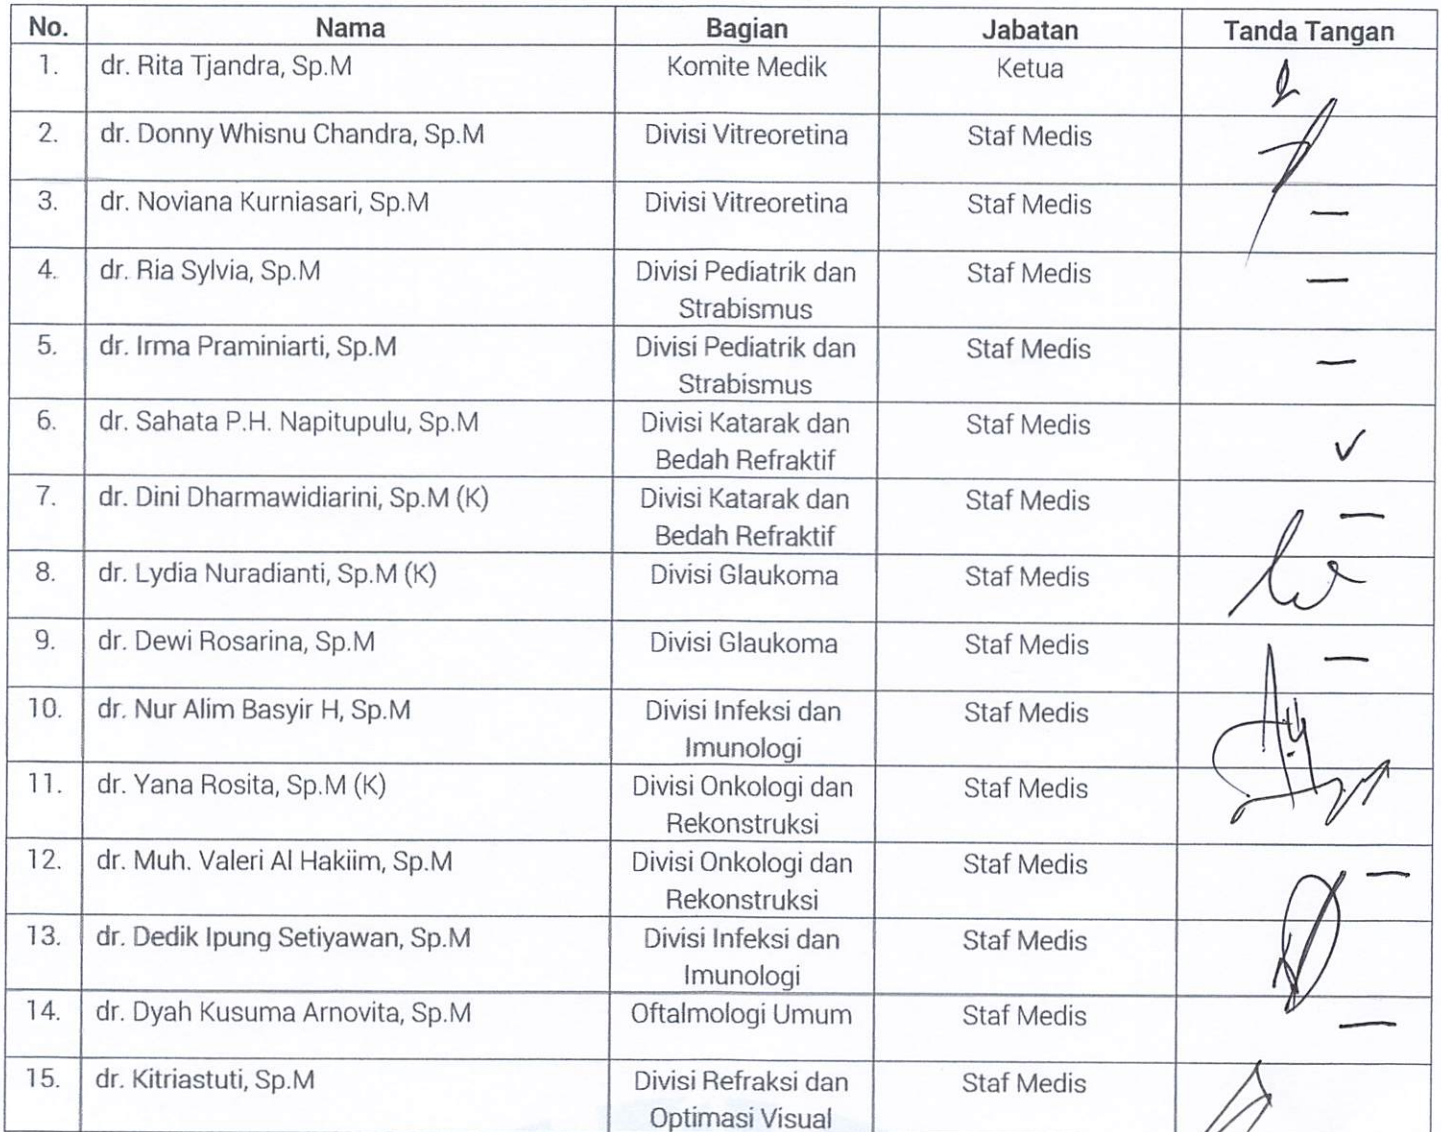 No. Nama Bagian Jabatan Tanda Tangan
1. dr. Rita Tjandra, Sp.M Komite Medik Ketua
2. dr. Donny Whisnu Chandra, Sp.M Divisi Vitreoretina Staf Medis
3. dr. Noviana Kurniasari, Sp.M Divisi Vitreoretina Staf Medis —
4. dr. Ria Sylvia, Sp.M Divisi Pediatrik dan Staf Medis —
Strabismus
5. dr. Irma Praminiarti, Sp.M Divisi Pediatrik dan Staf Medis —
Strabismus
6. dr. Sahata P.H. Napitupulu, Sp.M Divisi Katarak dan Staf Medis ✓
Bedah Refraktif
7. dr. Dini Dharmawidiarini, Sp.M (K) Divisi Katarak dan Staf Medis —
Bedah Refraktif
8. dr. Lydia Nuradianti, Sp.M (K) Divisi Glaukoma Staf Medis
9. dr. Dewi Rosarina, Sp.M Divisi Glaukoma Staf Medis —
10. dr. Nur Alim Basyir H, Sp.M Divisi Infeksi dan Staf Medis
Imunologi
11. dr. Yana Rosita, Sp.M (K) Divisi Onkologi dan Staf Medis
Rekonstruksi
12. dr. Muh. Valeri Al Hakiim, Sp.M Divisi Onkologi dan Staf Medis —
Rekonstruksi
13. dr. Dedik Ipung Setiyawan, Sp.M Divisi Infeksi dan Staf Medis
Imunologi
14. dr. Dyah Kusuma Arnovita, Sp.M Oftalmologi Umum Staf Medis —
15. dr. Kitriastuti, Sp.M Divisi Refraksi dan Staf Medis
Optimasi Visual